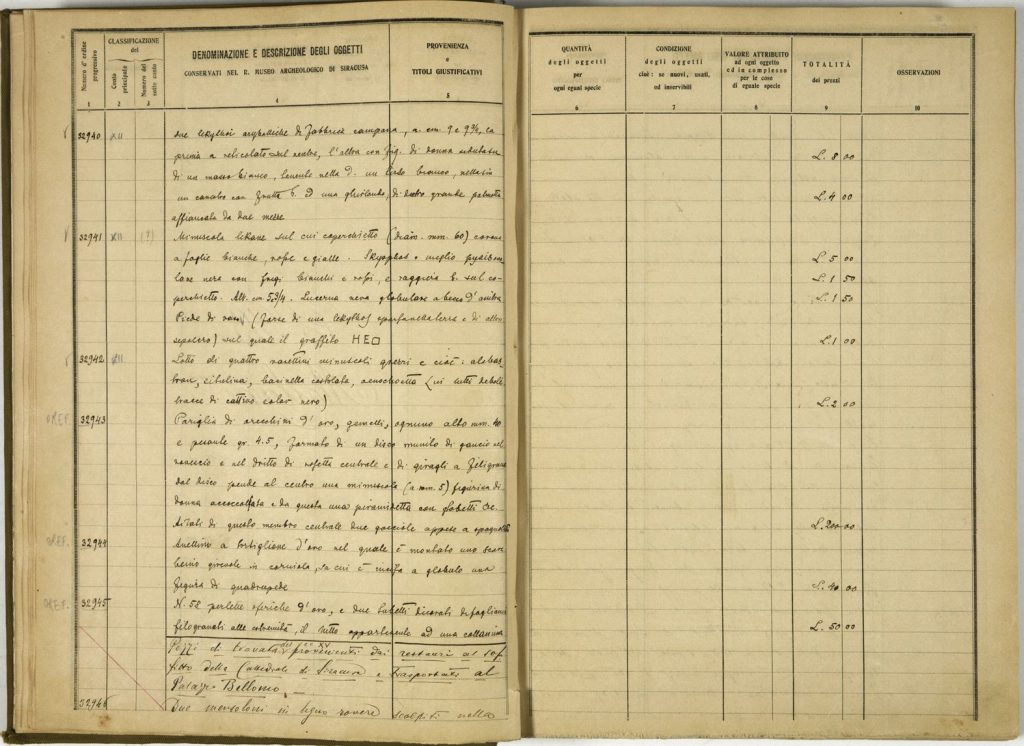 Numero d'ordine progressivo
CLASSIFICAZIONE del
Conto principale
Numero del sotto conto
DENOMINAZIONE E DESCRIZIONE DEGLI OGGETTI
CONSERVATI NEL R. MUSEO ARCHEOLOGICO DI SIRACUSA
PROVENIENZA
e
TITOLI GIUSTIFICATIVI
1 2 3 4 5
32940 XII due lekythoi aryballiche di fabbrica campana, a. cm. 9 e 9½, la
prima a reticolato sul ventre, l'altra con fig. di donna seduta su
di un masso bianco, tenente nella d. un tirso bianco, nella sin
un canestro con frutta e una ghirlanda, di dietro grande palmetta
affiancata da due mezze
32941 XII (?) Minuscola lekane sul cui coperchietto (diam. mm. 60) corona
a foglie bianche, rosse e gialle. Skyphos o meglio pyxis
nera con fregi bianchi e rossi, e raggiera sul co-
perchietto. Alt. cm. 5 3/4. Lucerna nera globulare a becco d'anitra
Piede di vaso (forse di una lekythos e di altro
sepolcro) sul quale il graffito HE□
32942 XII Lotto di quattro vasettini minuscoli grezzi e cioè: alabas
tron, bacinella costolata, oenochoetta (in tutti debole
tracce di cattivo color nero)
OREF. 32943 Pariglia di orecchini d'oro, gemelli, ognuno alto mm. 40
e pesante gr. 4.5, formato di un disco munito di gancio nel
rovescio e nel dritto di rosetta centrale e di giragli a filigrana
dal disco pende al centro una minuscola (a mm. 5) figurina di
donna accoccolata e da questa una piramidetta con globetti Ai
lati di questo membro centrale due gocciole appese a
OREF. 32944 Anellino a tortiglione d'oro nel quale è montato uno scara
beino girevole in corniola, su cui è incisa a globulo una
figura di quadrupede
OREF. 32945 N. 58 perlette sferiche d'oro, e due tubetti decorati di fogliami
filogranati alle estremità, il tutto appartenente ad una collanina
Pezzi di travata del sec XV provenienti dai restauri al sof
fitto della Cattedrale di Siracusa e trasportati al
Palazzo Bellomo.
32946 Due mensoloni in legno rovere scolpiti nella
QUANTITÀ
degli oggetti
per
ogni egual specie
CONDIZIONE
degli oggetti
cioè: se nuovi, usati,
od inservibili
VALORE ATTRIBUITO
ad ogni oggetto
ed in complesso
per le cose
di eguale specie
TOTALITÀ
dei prezzi
OSSERVAZIONI
6 7 8 9 10
L. 8 00
L. 4 00
L. 5 00
L. 1 50
L. 1 50
L. 1 00
L. 2 00
L. 200 00
L. 40 00
L. 50 00